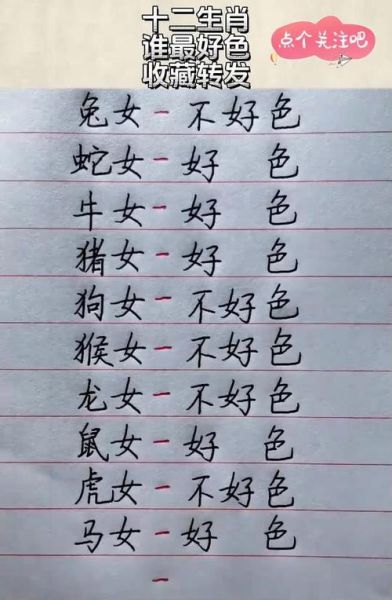 十二生肖
谁最好色
收藏转发
点个关注吧
兔女-不好色
蛇女-好 色
牛女-好 色
猪女-好 色
狗女-不好色
猴女-不好色
龙女-不好色
鼠女-好 色
虎女-不好色
马女-好 色
-